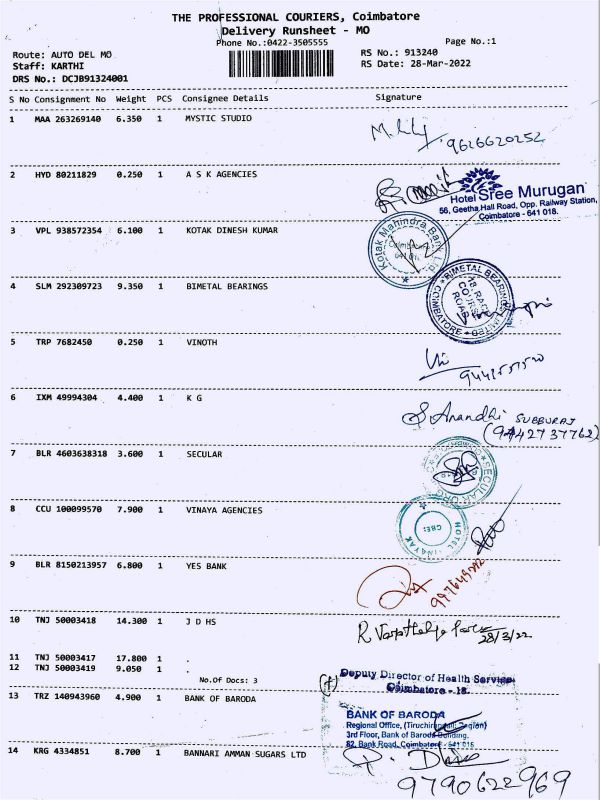 THE PROFESSIONAL COURIERS, Coimbatore
Delivery Runsheet - MO
Phone No.:0422-3505555
Page No.:1
Route: AUTO DEL MO
RS No.: 913240
Staff: KARTHI
RS Date: 28-Mar-2022
DRS No.: DCJB91324001
S No Consignment No Weight PCS Consignee Details Signature
1 MAA 263269140 6.350 1 MYSTIC STUDIO
9626620252
2 HYD 80211829 0.250 1 A S K AGENCIES
Hotel Sree Murugan
56, Geetha Hall Road, Opp. Railway Station,
Coimbatore - 641 018.
3 VPL 938572354 6.100 1 KOTAK DINESH KUMAR
Kotak Mahindra Bank Ltd
Coimbatore
4 SLM 292309723 9.350 1 BIMETAL BEARINGS
BIMETAL BEARINGS LIMITED
COIMBATORE
18, RACE
COURSE
ROAD
5 TRP 7682450 0.250 1 VINOTH
6 IXM 49994304 4.400 1 K G
S. Anandhi SUBBURAJ
(9442737762)
7 BLR 4603638318 3.600 1 SECULAR
SECULAR
8 CCU 100099570 7.900 1 VINAYA AGENCIES
HOTEL VINAYAK
CBE:
9 BLR 8150213957 6.800 1 YES BANK
10 TNJ 50003418 14.300 1 J D HS
28/3/22
11 TNJ 50003417 17.800 1 .
12 TNJ 50003419 9.050 1 .
No.Of Docs: 3
Deputy Director of Health Service
Coimbatore - 18.
13 TRZ 140943960 4.900 1 BANK OF BARODA
BANK OF BARODA
Regional Office, (Tiruchirappalli Region)
3rd Floor, Bank of Baroda Building,
82, Bank Road, Coimbatore - 641 018
14 KRG 4334851 8.700 1 BANNARI AMMAN SUGARS LTD
9790622969